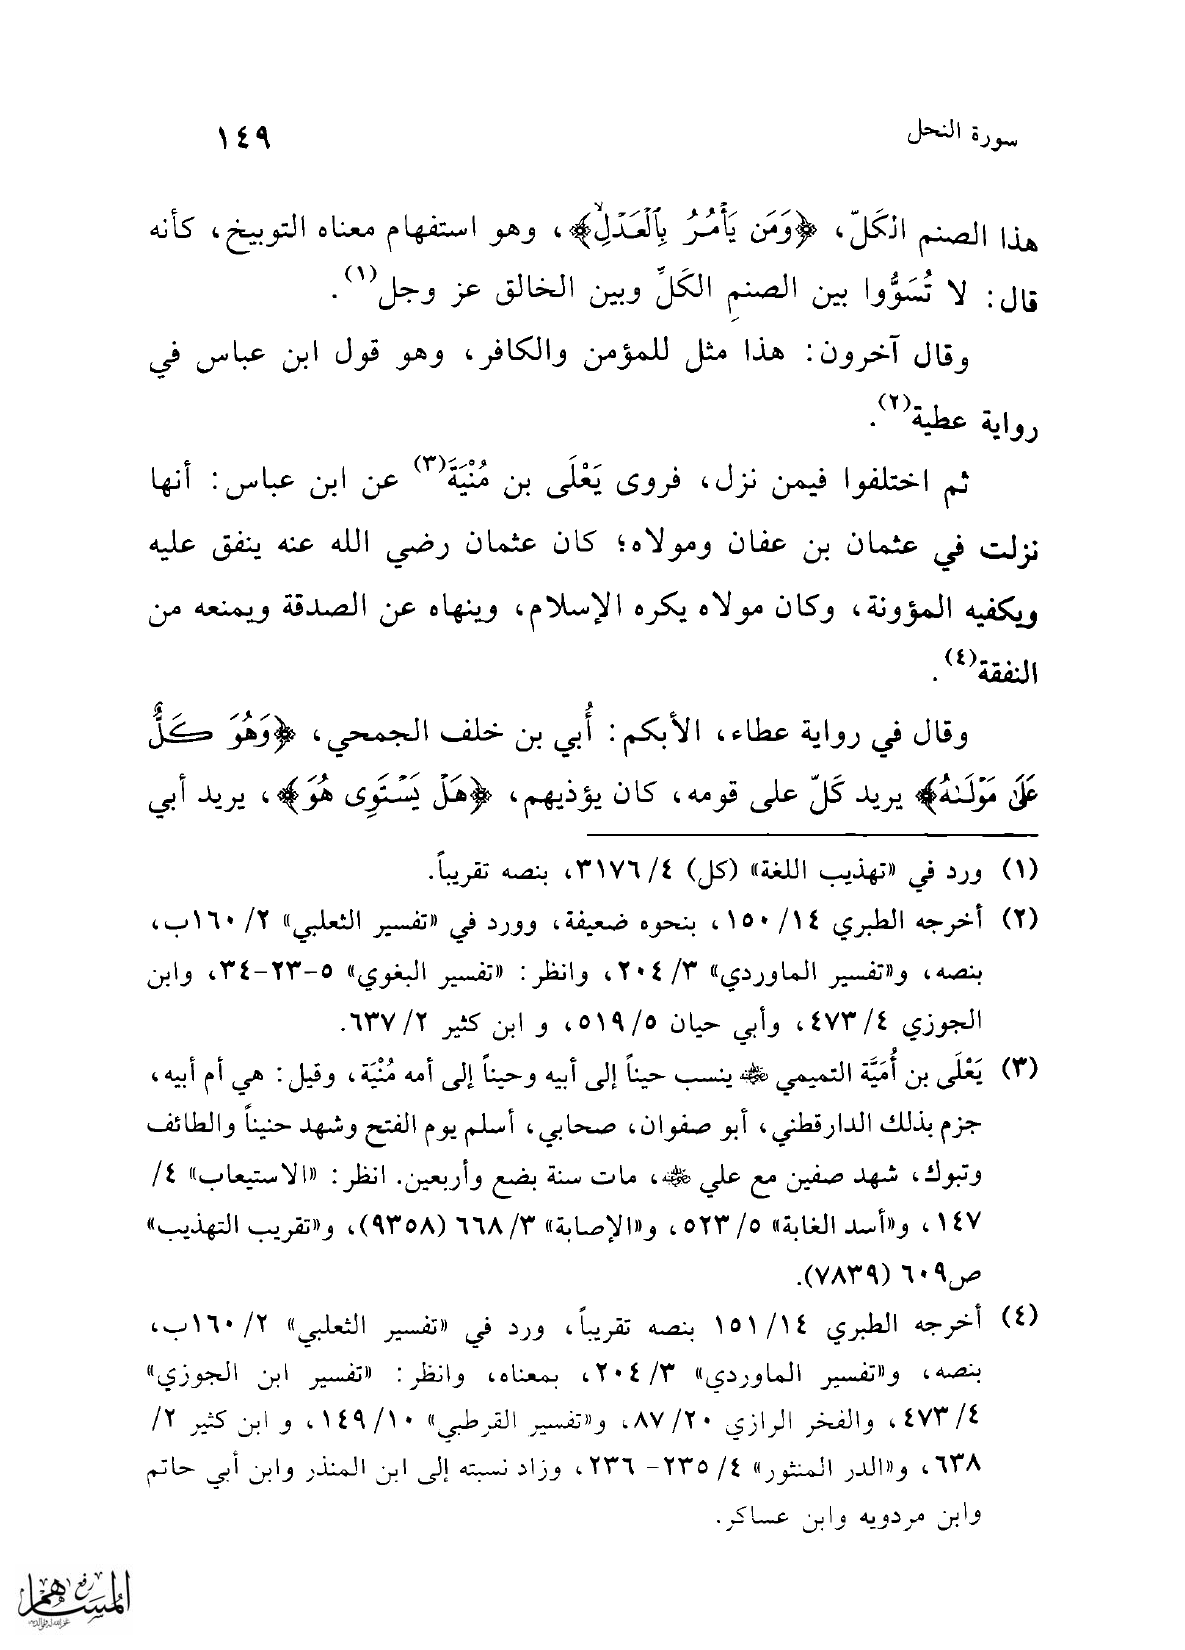 سورة النحل ١٤٩
هذا الصنم الكَلّ، ﴿وَمَن يَأۡمُرُ بِٱلۡعَدۡلِۙ﴾، وهو استفهام معناه التوبيخ، كأنه
قال: لا تُسَوُّوا بين الصنمِ الكَلِّ وبين الخالق عز وجل(١).
وقال آخرون: هذا مثل للمؤمن والكافر، وهو قول ابن عباس في
رواية عطية(٢).
ثم اختلفوا فيمن نزل، فروى يَعْلَى بن مُنْيَةَ(٣) عن ابن عباس: أنها
نزلت في عثمان بن عفان ومولاه؛ كان عثمان رضي الله عنه ينفق عليه
ويكفيه المؤونة، وكان مولاه يكره الإسلام، وينهاه عن الصدقة ويمنعه من
النفقة(٤).
وقال في رواية عطاء، الأبكم: أُبي بن خلف الجمحي، ﴿وَهُوَ كَلٌّ
عَلَىٰ مَوۡلَىٰهُ﴾ يريد كَلّ على قومه، كان يؤذيهم، ﴿هَلۡ يَسۡتَوِى هُوَ﴾، يريد أبي
(١) ورد في «تهذيب اللغة» (كل) ٤/ ٣١٧٦، بنصه تقريباً.
(٢) أخرجه الطبري ١٤/ ١٥٠، بنحوه ضعيفة، وورد في «تفسير الثعلبي» ٢/ ١٦٠ب،
بنصه، و«تفسير الماوردي» ٣/ ٢٠٤، وانظر: «تفسير البغوي» ٥-٢٣-٣٤، وابن
الجوزي ٤/ ٤٧٣، وأبي حيان ٥/ ٥١٩، و ابن كثير ٢/ ٦٣٧.
(٣) يَعْلَى بن أُمَيَّة التميمي ﷺ ينسب حيناً إلى أبيه وحيناً إلى أمه مُنْيَة، وقيل: هي أم أبيه،
جزم بذلك الدارقطني، أبو صفوان، صحابي، أسلم يوم الفتح وشهد حنيناً والطائف
وتبوك، شهد صفين مع علي ﷺ، مات سنة بضع وأربعين. انظر: «الاستيعاب» ٤/
١٤٧، و«أسد الغابة» ٥/ ٥٢٣، و«الإصابة» ٣/ ٦٦٨ (٩٣٥٨)، و«تقريب التهذيب»
ص٦٠٩ (٧٨٣٩).
(٤) أخرجه الطبري ١٤/ ١٥١ بنصه تقريباً، ورد في «تفسير الثعلبي» ٢/ ١٦٠ب،
بنصه، و«تفسير الماوردي» ٣/ ٢٠٤، بمعناه، وانظر: «تفسير ابن الجوزي»
٤/ ٤٧٣، والفخر الرازي ٢٠/ ٨٧، و«تفسير القرطبي» ١٠/ ١٤٩، و ابن كثير ٢/
٦٣٨، و«الدر المنثور» ٤/ ٢٣٥- ٢٣٦، وزاد نسبته إلى ابن المنذر وابن أبي حاتم
وابن مردويه وابن عساكر.